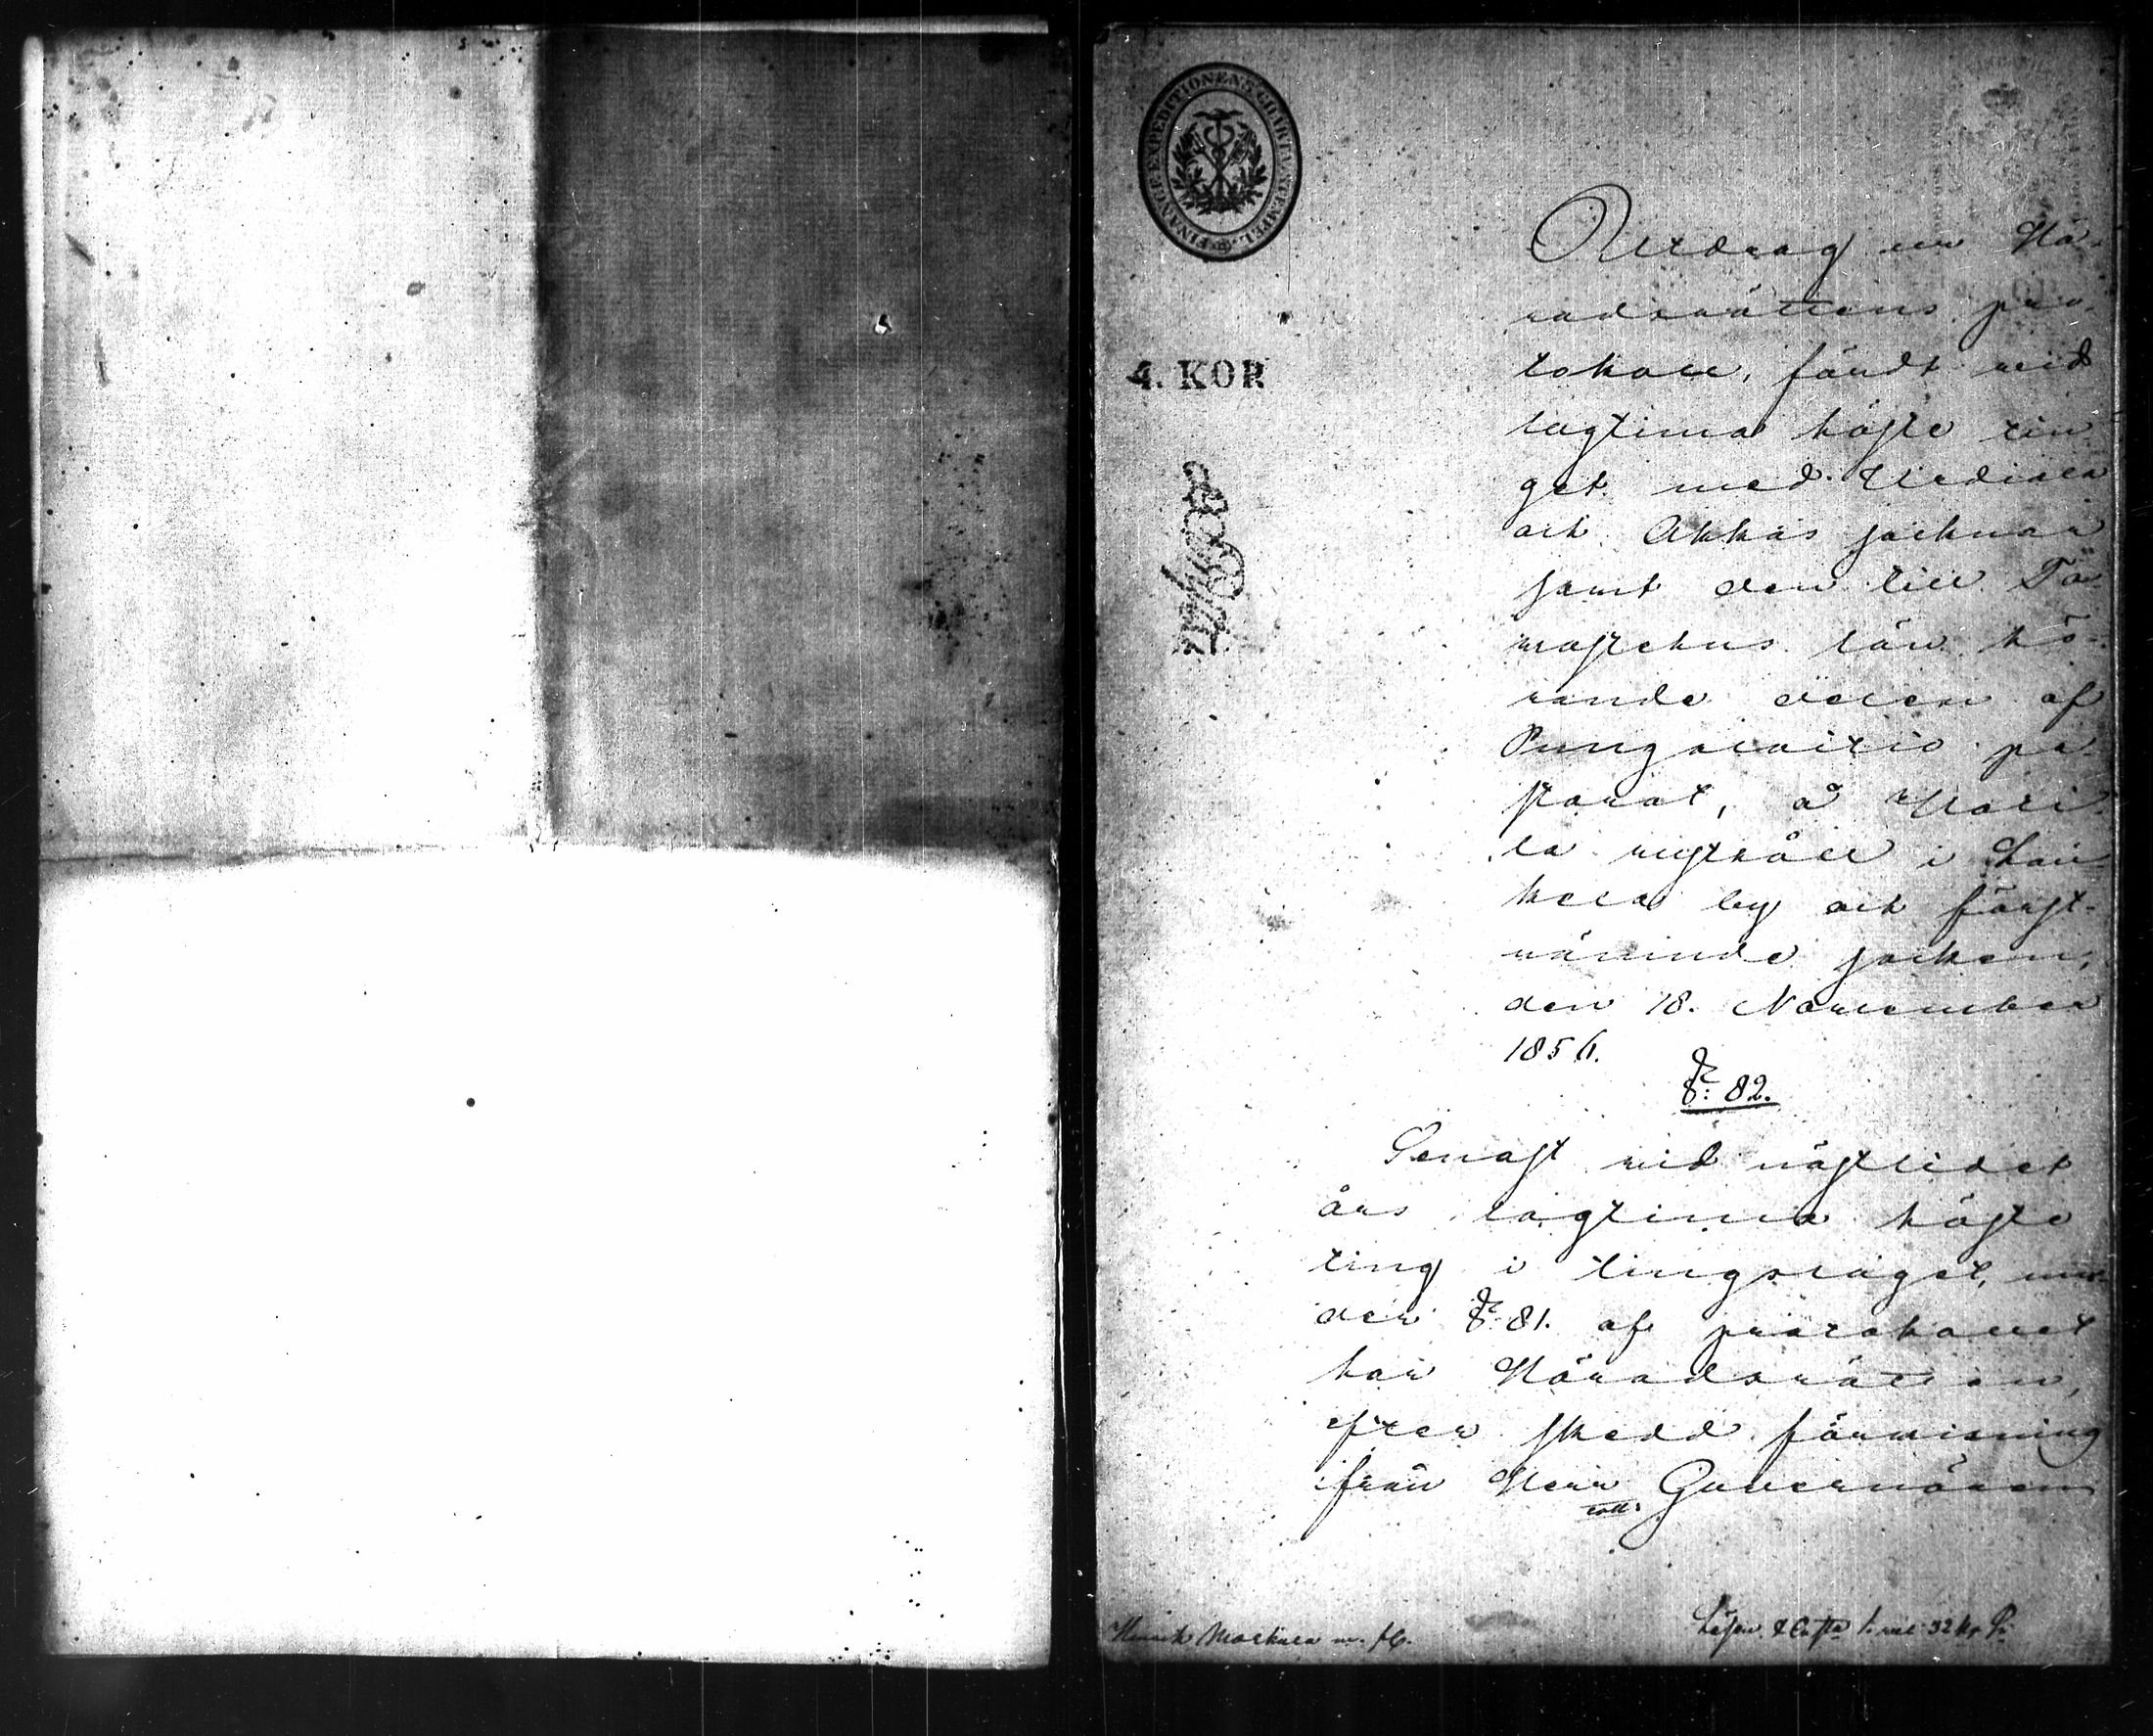 FINANCE EXPEDITIONENS CHARTÆ STEMPEL
4. KOR
Utdrag ur Hä-
radsrättens pro-
tokoll, fördt vid
lagtima höste tin-
get med Urdiala
och Akkas socknar
samt den till Ta-
wastehus län hö-
rande delen af
Pungalaitio pa-
storat, å
la rusthåll i Lau-
kela by och först-
nämnde socken,
den 18. November
1856.
§ 82.
Senast vid nästlidet
års lagtima höste
ting i tingslaget, un-
der § 81. af protokollet
har Häradsrätten,
efter skedd förvisning
ifrån Herr Guvernören
coll:
Henrik m. fl.
Lösen 1. rub. 32 kop. S:r